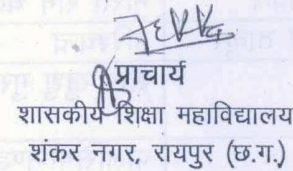 प्राचार्य
शासकीय शिक्षा महाविद्यालय
शंकर नगर, रायपुर (छ.ग.)